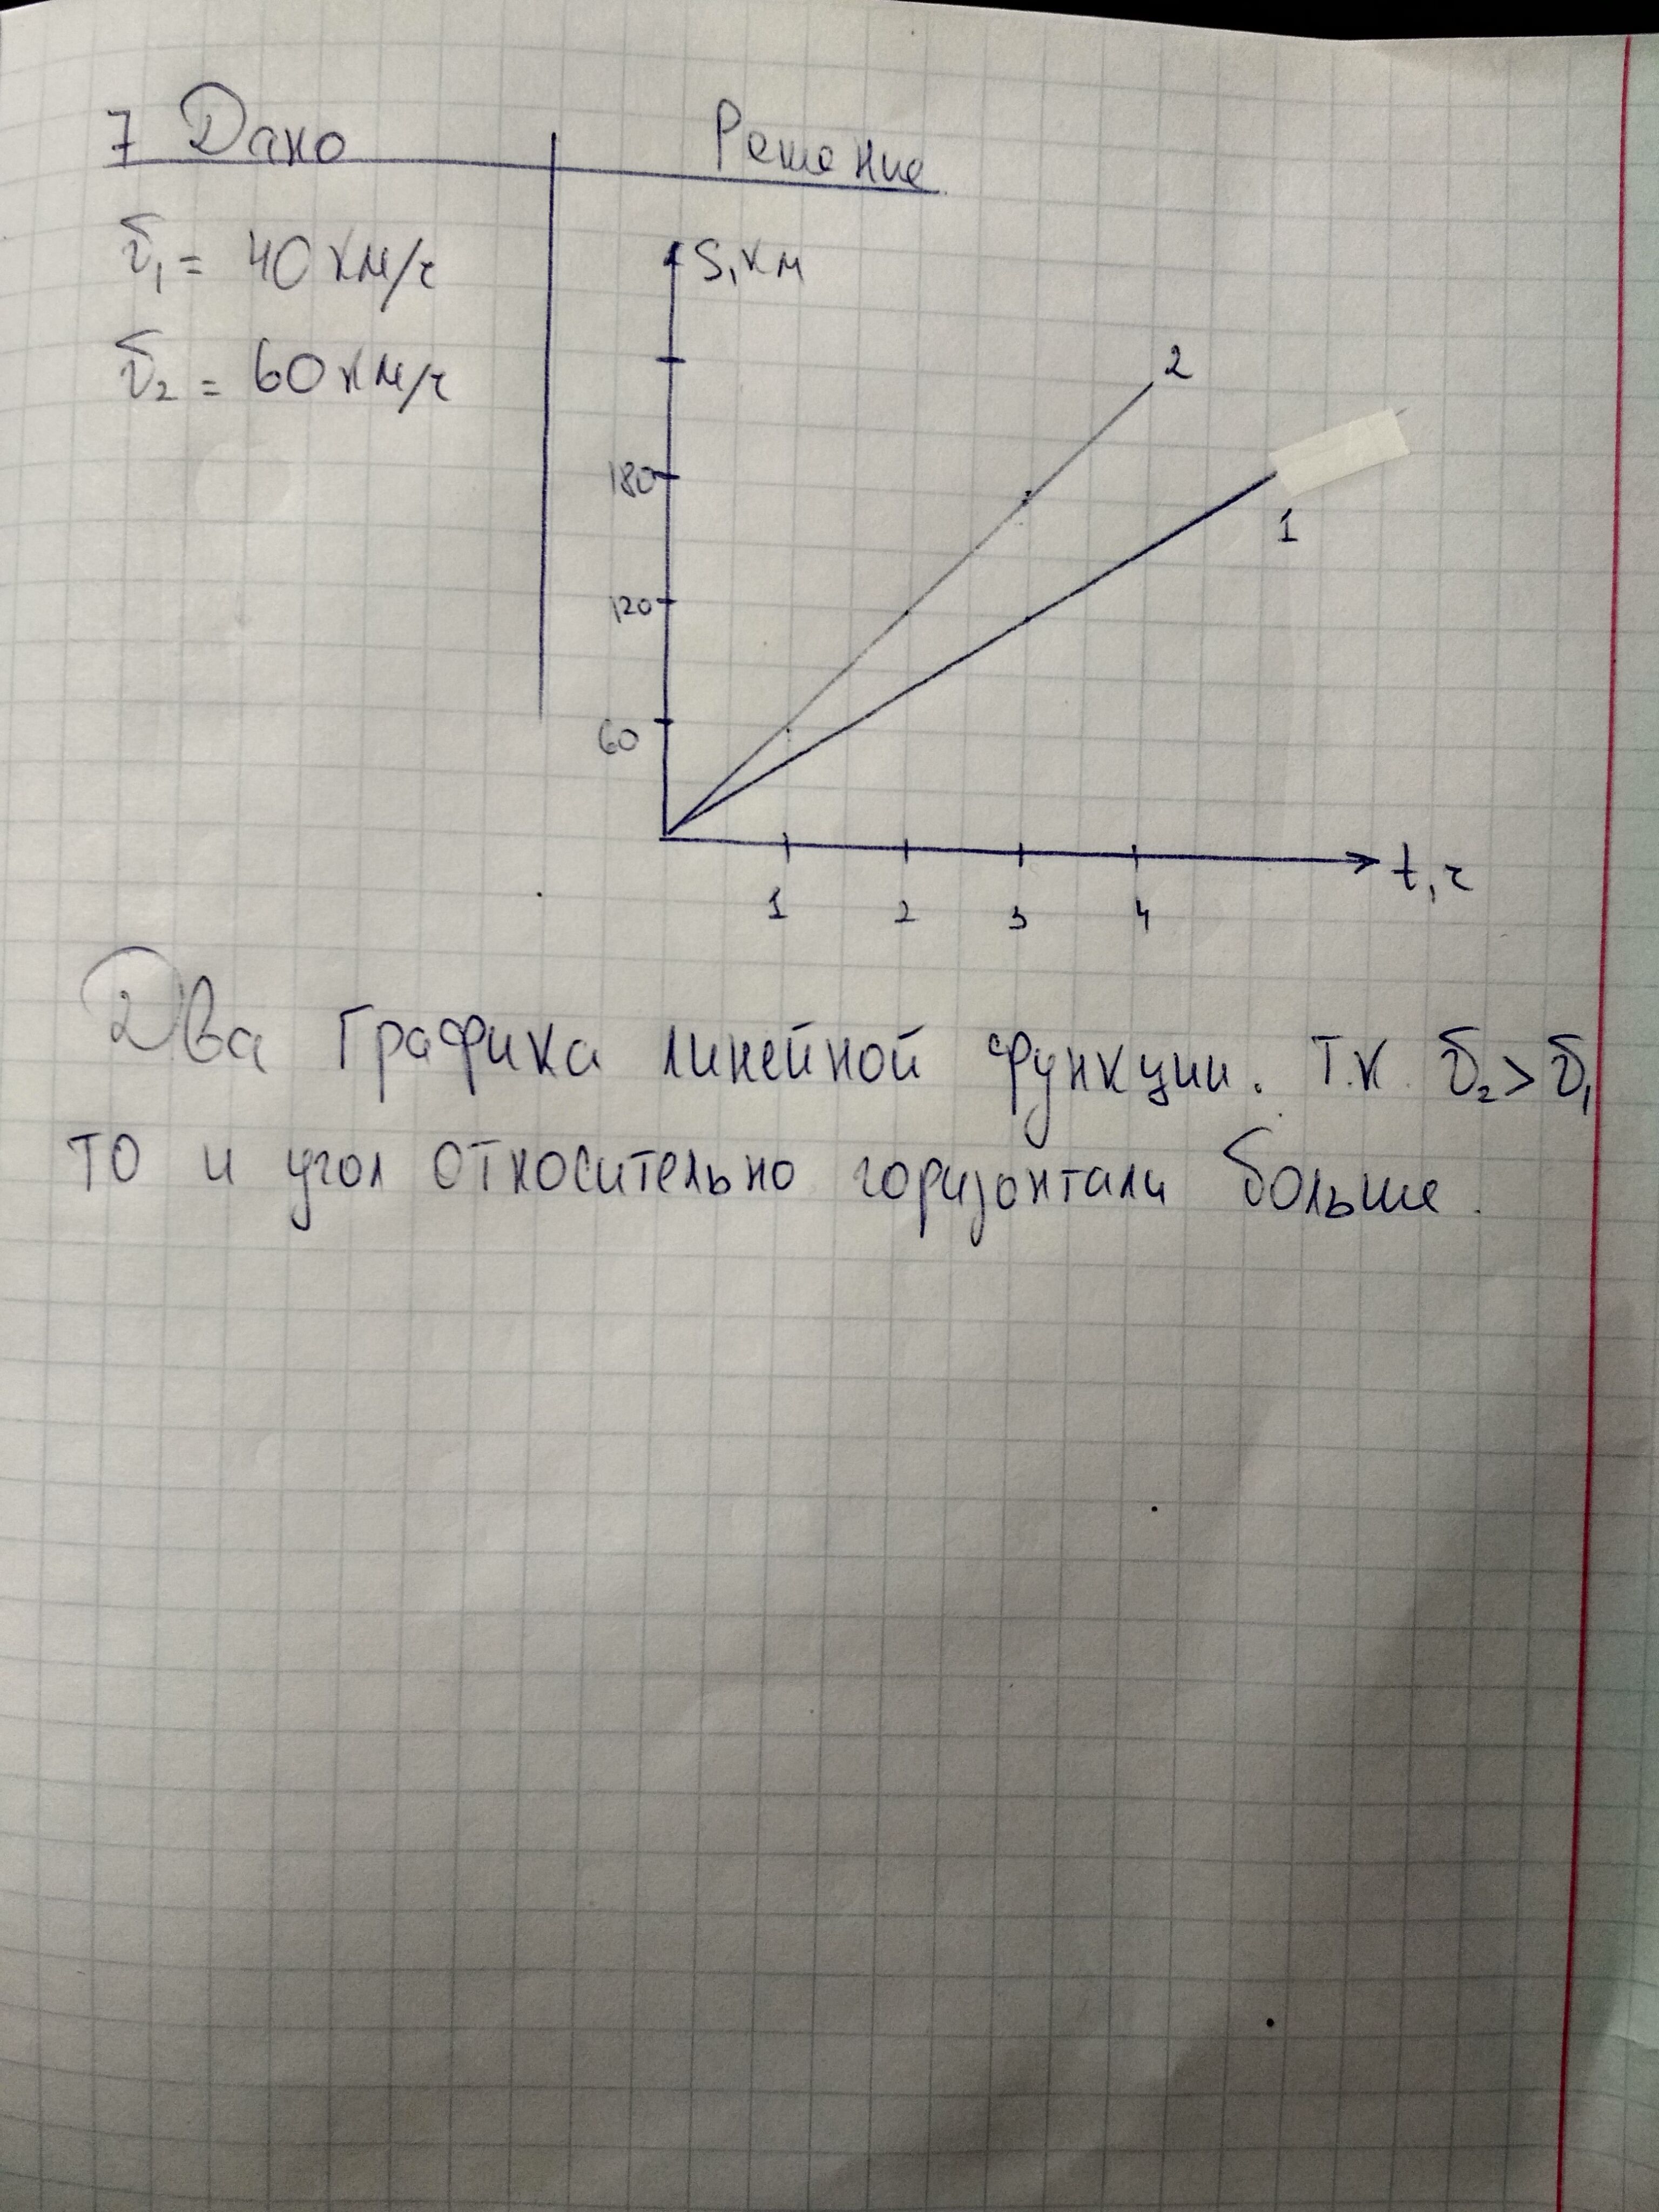 7 Дано Решение
υ₁ = 40 км/ч
υ₂ = 60 км/ч
S, км
2
180
1
120
60
t, ч
1 2 3 4
Два графика линейной функции. Т.к. υ₂ > υ₁
то и угол относительно горизонтали больше.